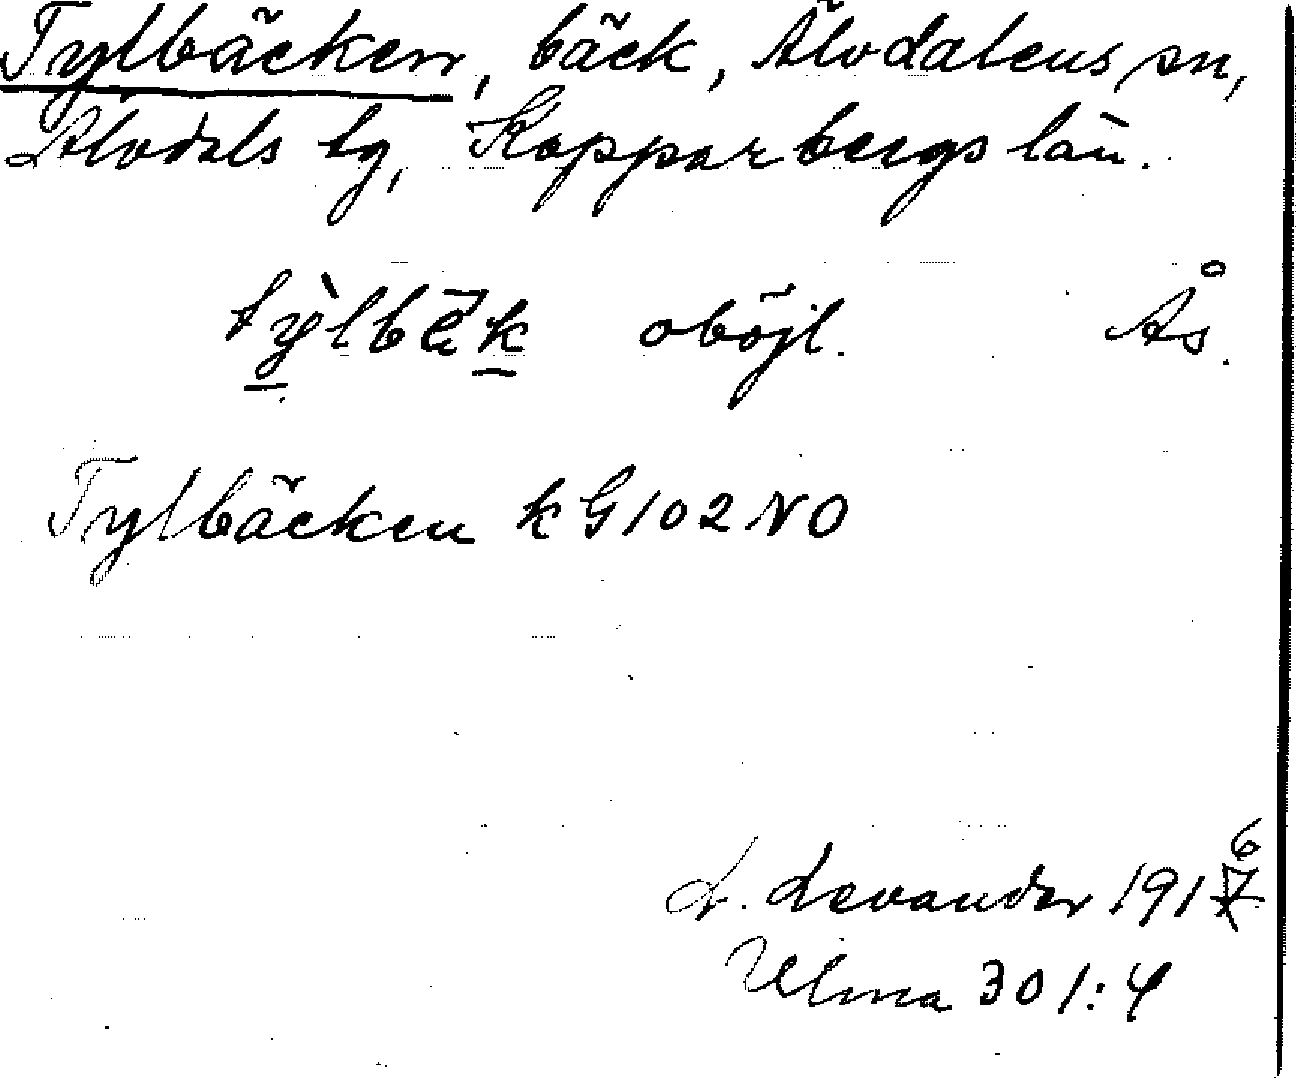 Tylbäcken, bäck, Älvdalens sn,
Älvdals tg, Kopparbergs län.
tỳlbä̀k oböjl. Ås.
Tylbäcken kG102NO
L. Levander 1916
Ulma 301:4